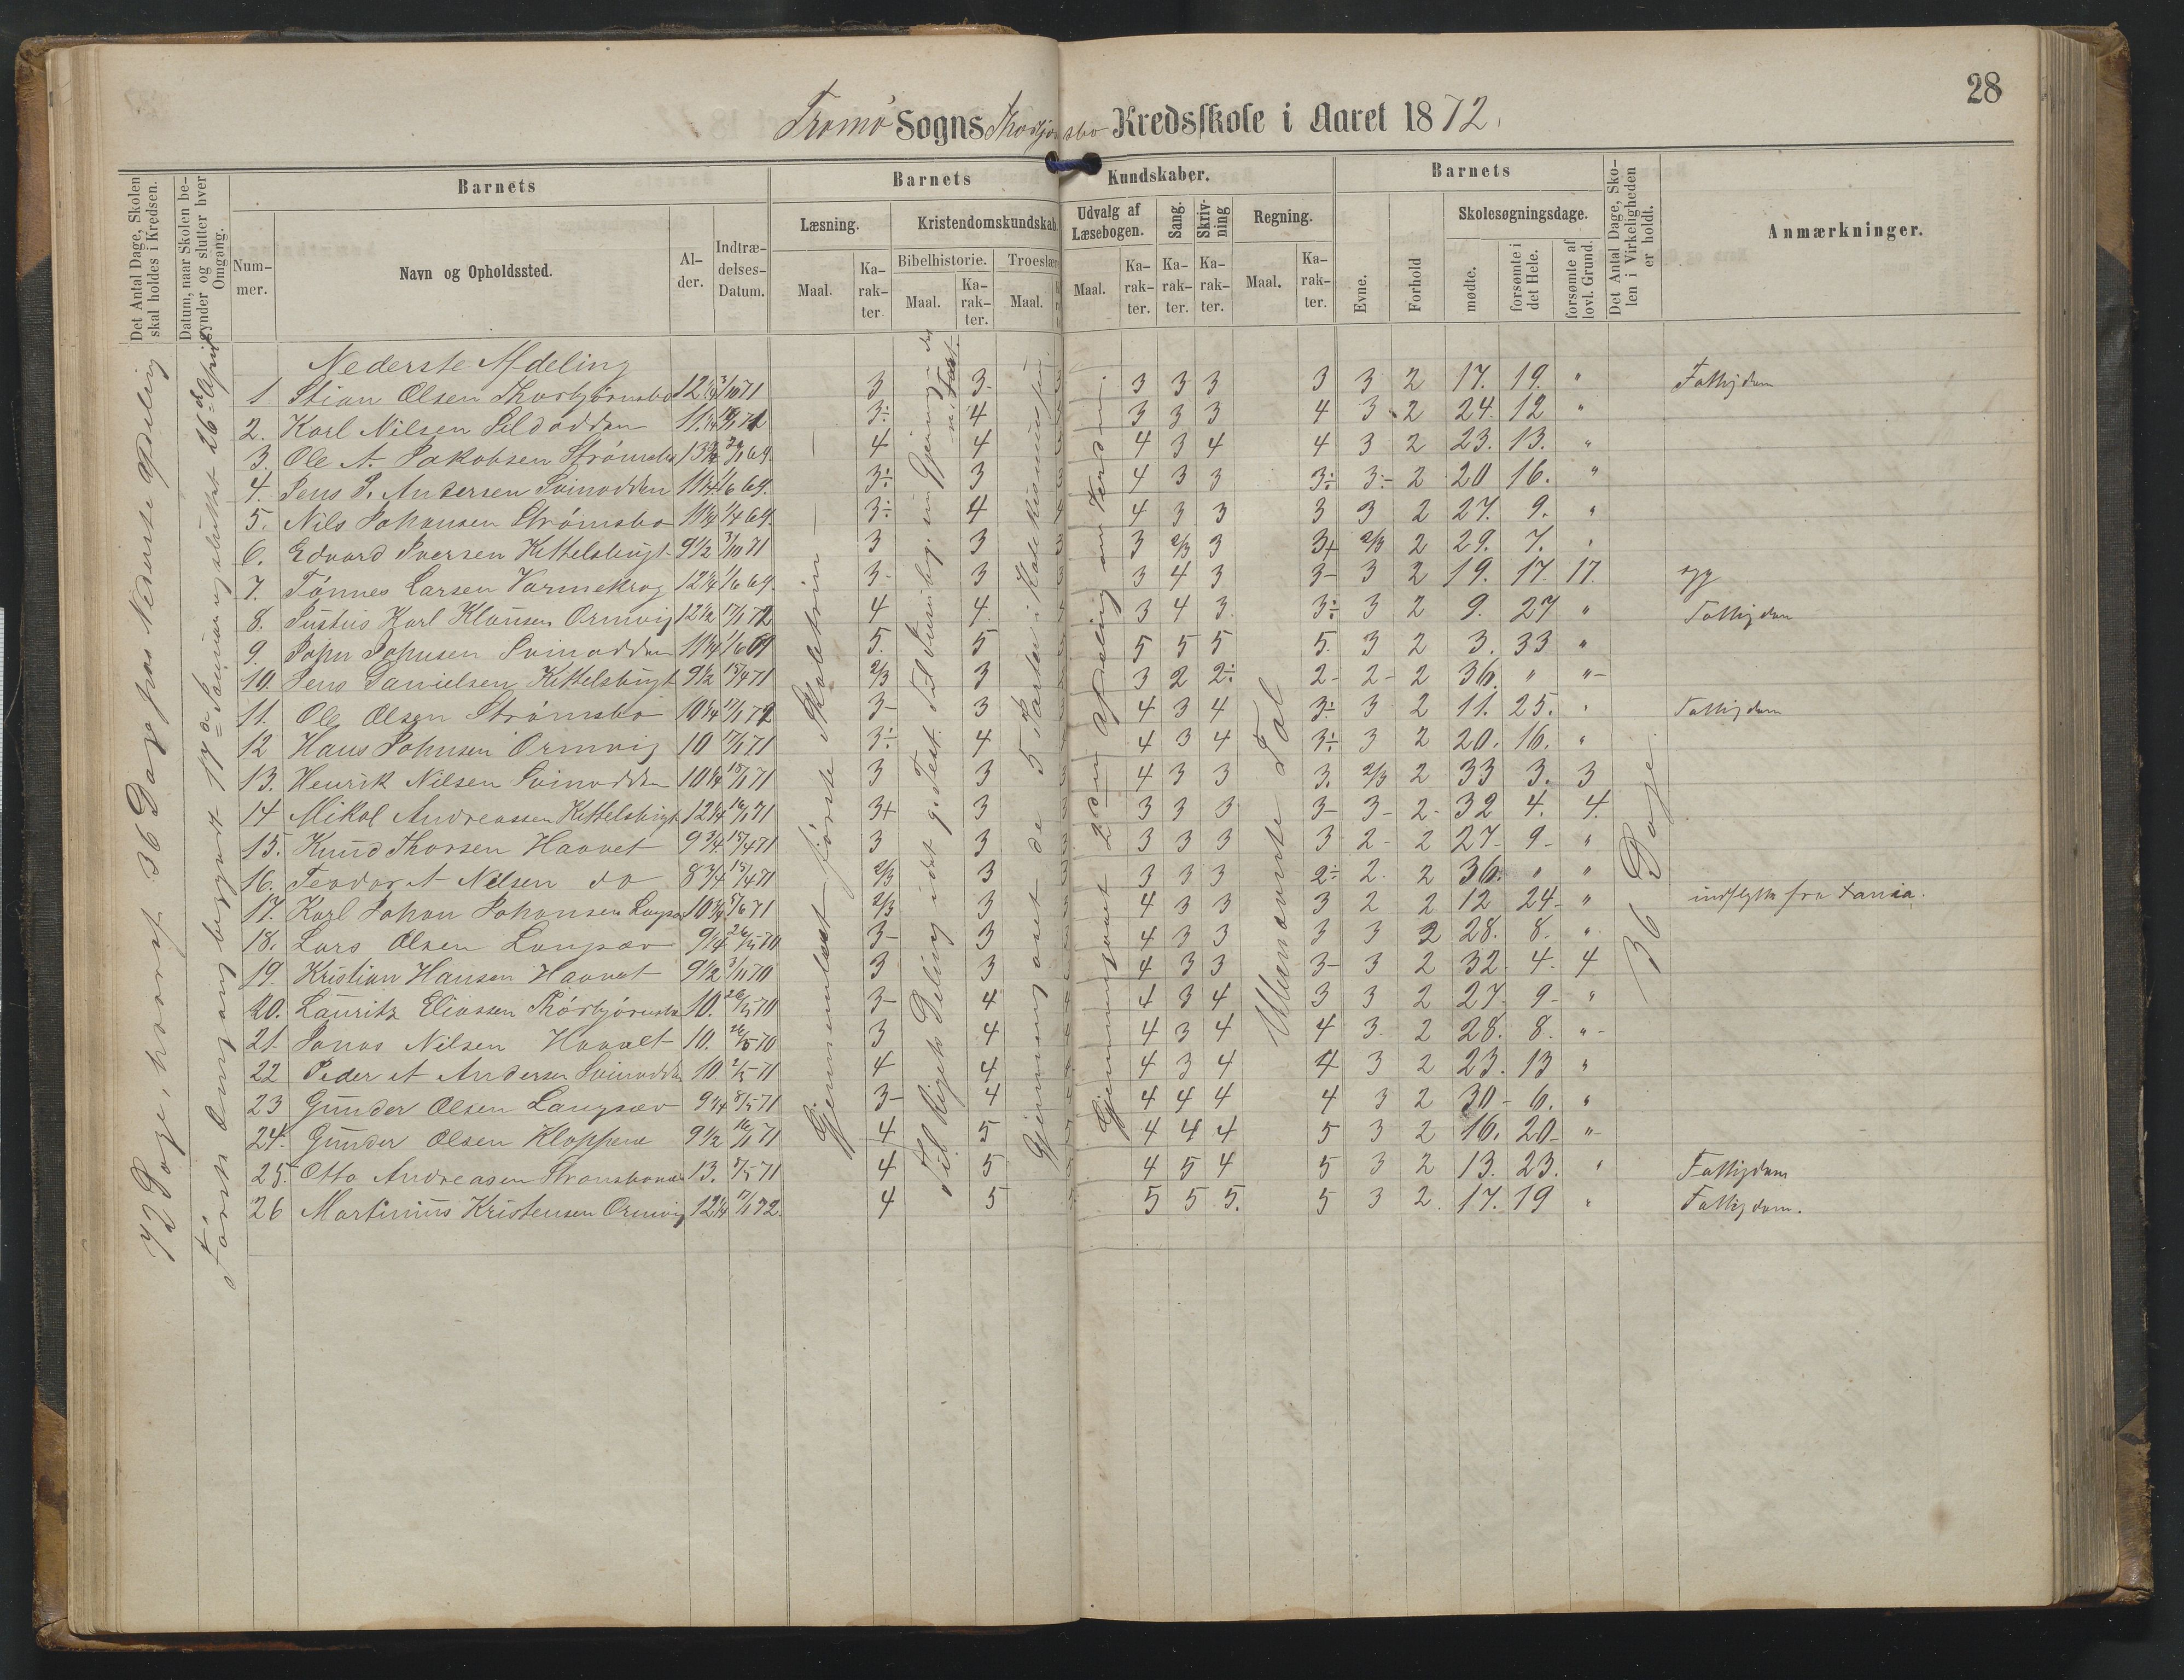 28
Tromø Sogns Thorbjørnsbo Kredsskole i Aaret 1872.
Det Antal Dage, Skolen skal holdes i Kredsen.
Datum, naar Skolen begynder og slutter hver Omgang.
Barnets
Barnets Kundskaber.
Barnets
Det Antal Dage, Skolen i Virkeligheden er holdt.
Anmærkninger.
Num-mer.
Navn og Opholdssted.
Al-der.
Indtræ-delses-Datum.
Læsning.
Kristendomskundskab.
Udvalg af Læsebogen.
Sang.
Skriv-ning
Regning.
Evne.
Forhold
Skolesøgningsdage.
Bibelhistorie. Troeslære
Maal. Ka-rak-ter. Maal. Ka-rak-ter. Maal. Maal. Ka-rak-ter. Ka-rak-ter. Ka-rak-ter. Maal. Ka-rak-ter.
mødte. forsømte i det Hele. forsømte af lovl. Grund.
72 Dage, hvoraf 36 Dage paa Nederste Afdeling
Første Omgang begyndt 17de Januar og sluttet 26de April
Gjennemlæst første Skoletrin
Gjennemgaaet de 5 Parter i Katekismusen
Gjennemgaaet 2den Afdeling
Ubenævnte Tal
36 Dage.
Nederste Afdeling
1 Stian Olsen Thorbjørnsbo 12 1/4 3/10 71 3 3. 3 3 3 3 3 2 17. 19. " Fattigdom
2. Karl Nilsen Sildodden 11 1/4 3÷ 4 3 3 3 4 3 2 24. 12 "
3. Ole A. Jakobsen Strømsbo 69. 4 4 4 3 4 4 3 2 23. 13. "
4. Jens P. Andersen Svinodden 11 1/4 1/6 69. 3÷ 3 4 3 3 3÷ 3- 2 20 16. "
5. Nils Johansen Strømsbo 11 1/4 1/4 69. 3÷ 4 4 3 3 3 3 2 27. 9. "
6. Edvard Iversen Kittelsbugt 9 1/2 3/10 71 3 3 3 2/3 3 3+ 2/3 2 29. 7. "
7. Tønnes Larsen Varmekrog 12 1/4 1/6 69. 3- 3 3 4 3 3- 3 2 19. 17. 17. syg
8. Justus Karl Klausen Ormvig 12 1/2 17/1 72 4 4. 3 4 3. 3÷ 3 2 9. 27 " Fattigdom
9. John Johnsen Svinodden 11 1/4 1/6 69 5. 5 5 5 5 5. 3 2 3. 33 "
10. Jens Danielsen Kittelsbugt 9 1/2 15/4 71 2/3 3 3 2 2÷ 2- 2- 2 36. " "
11. Ole Olsen Strømsbo 10 1/4 17/1 72 3- 3 4 3 4 3÷ 3 2 11. 25. " Fattigdom
12 Hans Johnsen Ormvig 10 17/1 71 3÷ 4 4 3 4 3÷ 3 2 20. 16. "
13. Henrik Nilsen Svinodden 10 1/4 18/1 71 3 3 4 3 3 3. 2/3 2 33 3. 3
14 Mikal Andreassen Kittelsbugt 12 1/4 16/1 71 3+ 3 3 3 3 3- 3- 2- 32 4. 4.
15. Knud Thorsen Haavet 9 3/4 15/4 71 3 3 3 3 3 3 2- 2 27- 9- "
16. Teodor A Nilsen do 8 3/4 15/4 71 2/3 3 3 3 3 2÷ 2. 2 36. " "
17. Karl Johan Johansen 10 3/4 71 2/3 3 4 3 3 3 2 2 12 24- " indflytte fra
18. Lars Olsen Langsæv 9 1/4 26/5 70 3- 3 4 3 3 3 3 2 28. 8. "
19. Kristian Hansen Haavet 9 1/2 3/11 70 3 3 4 3 3 3- 3 2 32. 4- 4
20. Lauritz Eliassen Thorbjørnsbo 10. 26/5 70 3- 4 4 3 4 3 3 2 27. 9- "
21. Jonas Nilsen Haavet 10. 26/5 70 3 4 4 3 4 4 3 2 28. 8. "
22 Peder A Andersen Svinodden 10. 2/5 71 4 4 4 3 4 4 3 2 23. 13 "
23 Gunder Olsen Langsæv 9 1/4 8/5 71 3- 4 4 4 4 4 3 2 30- 6. "
24. Gunder Olsen Kloppene 9 1/2 16/1 71 4 5 4 4 4 5 3 2 16. 20- "
25. Otto Andreasen 13. 8/5 71 4 5 4 5 4 5 3 2 13. 23. " Fattigdom
26 Martinius Kristensen Ormvig 12 1/4 17/1 72. 4 5 5 5 5. 5 3 2. 17. 19 " Fattigdom.